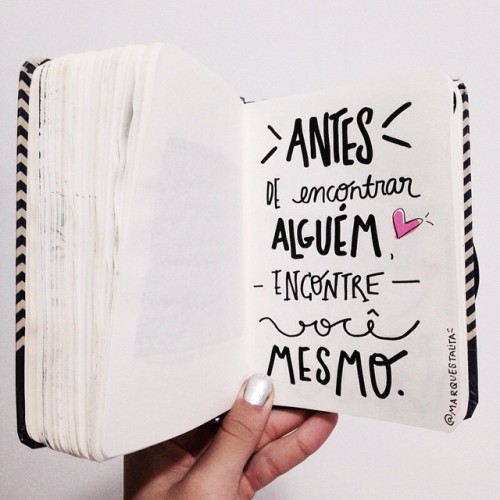 ANTES
DE encontrar
ALGUÉM,
- ENCONTRE -
você
MESMO.
@MARQUESTALITA